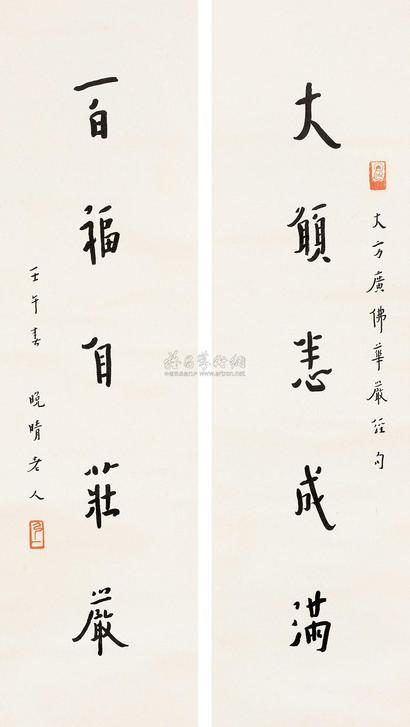 大方廣佛華嚴經句
大願悉成滿
百福自莊嚴
壬午春 晚晴老人
弘一
雅昌藝術網
www.artron.net